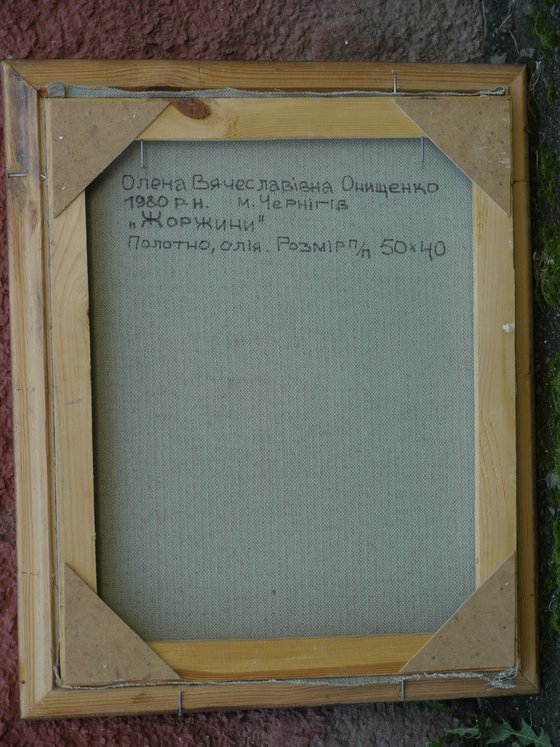 Олена Вячеславівна Онищенко
1980 р.н. м. Чернігів
„Жоржини"
Полотно, олія. Розмір п/л 50×40